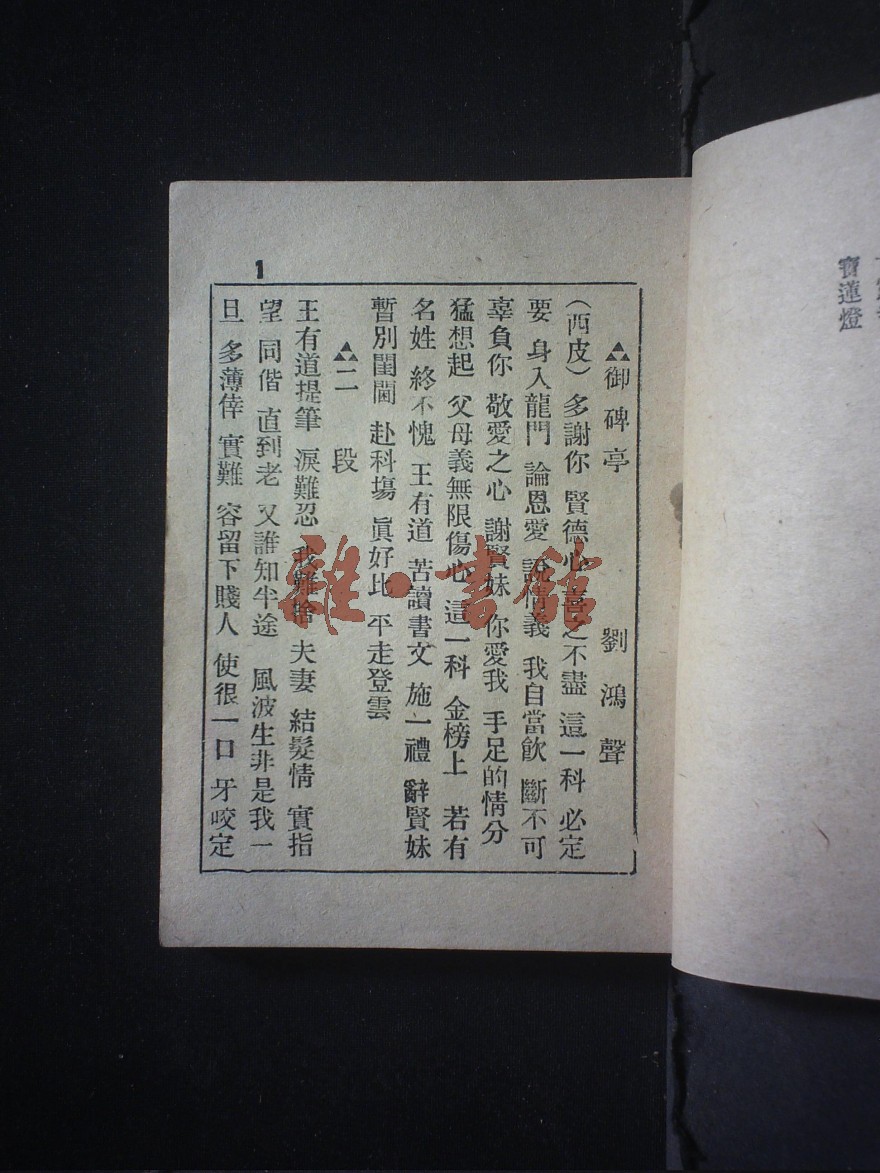 寶蓮燈
1
▲御碑亭 劉鴻聲
(西皮) 多謝你 賢德心 喜之不盡 這一科 必定
要 身入龍門 論恩愛 說情義 我自當飲 斷不可
辜負你 敬愛之心 謝賢妹 你愛我 手足的情分
猛想起 父母義無限傷心 這一科 金榜上 若有
名姓 終不愧 王有道 苦讀書文 施一禮 辭賢妹
暫別閨閫 赴科場 眞好比 平走登雲
▲二段
王有道提筆 淚難忍 我難捨 夫妻 結髮情 實指
望 同偕 直到老 又誰知半途 風波生非是我一
旦 多薄倖 實難 容留下賤人 使很一口 牙咬定
雜·書館